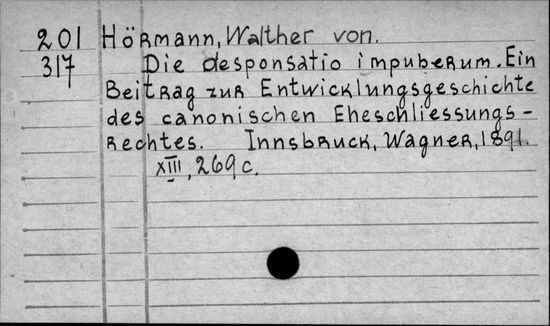 201 Hörmann, Walther von.
317 Die desponsatio impuberum. Ein
Beitrag zur Entwicklungsgeschichte
des canonischen Eheschliessungs-
rechtes. Innsbruck, Wagner, 1891.
XIII, 269 c.